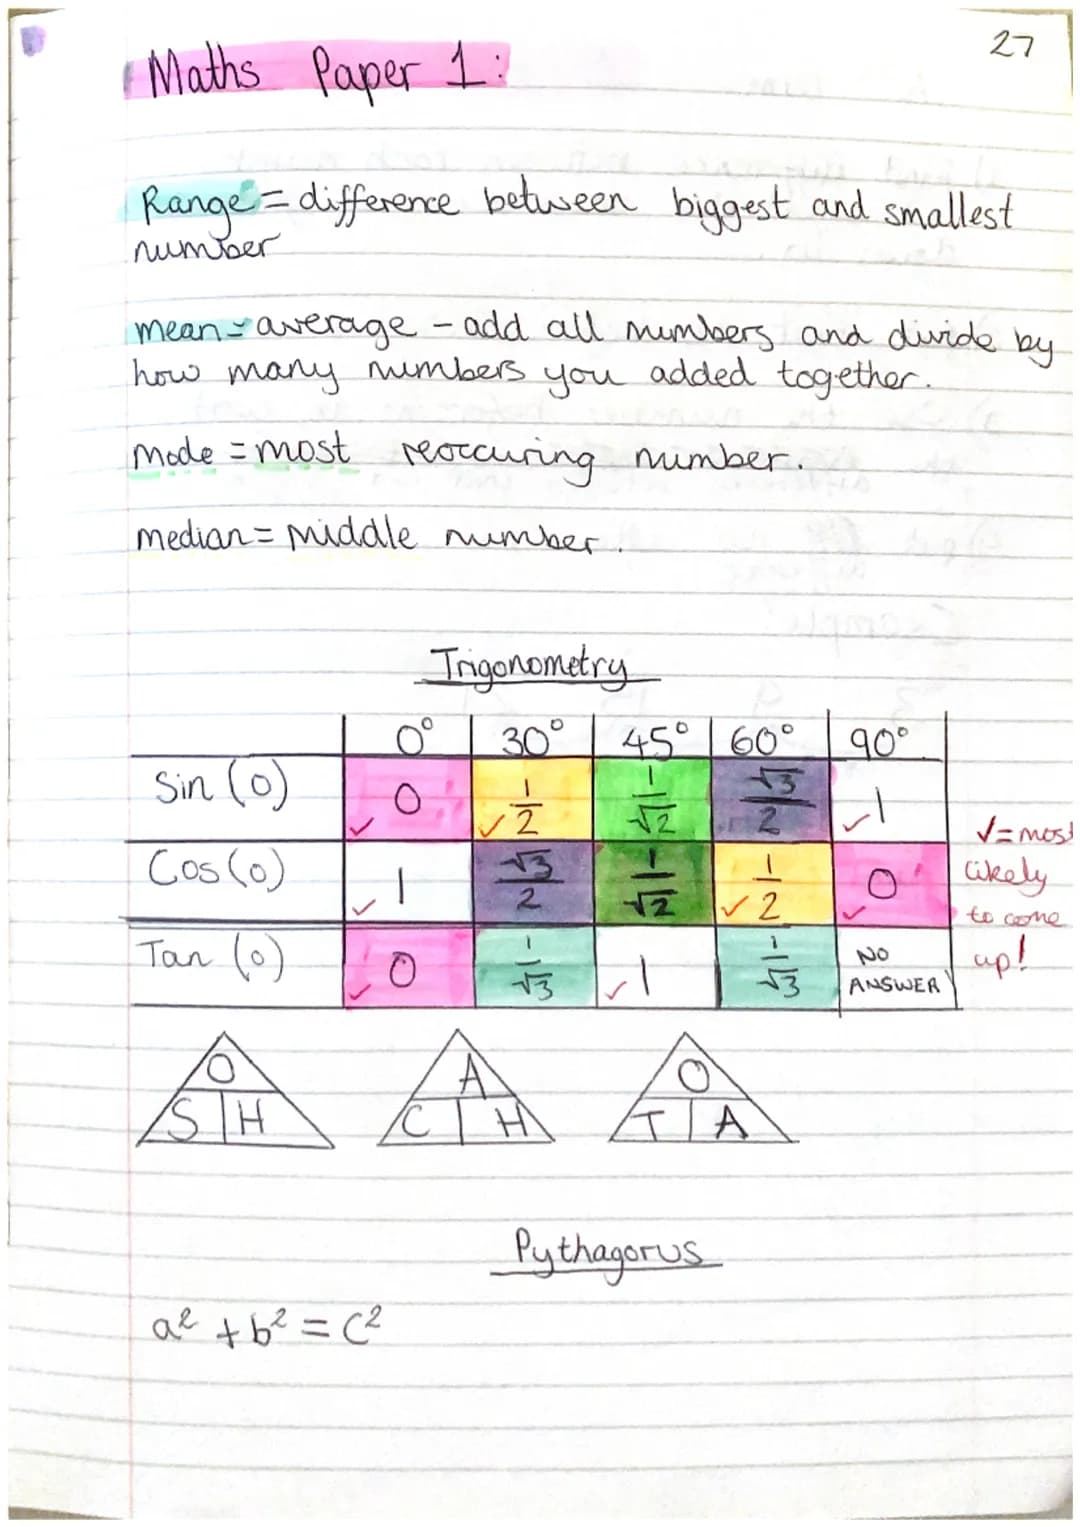 27
Maths Paper 1:
Range = difference between biggest and smallest
number
mean = average - add all numbers and divide by
how many numbers you added together.
mode = most reoccuring number.
median = middle number.
Trigonometry
0° 30° 45° 60° 90°
Sin (0) 0 ✓ 1/2 ✓ 1/√2 √3/2 1 ✓
Cos (0) 1 ✓ √3/2 1/√2 1/2 ✓ 0 ✓
Tan (0) 0 ✓ 1/√3 1 ✓ 1/√3 NO ANSWER
✓= most
likely
to come
up!
O A O
S H C H T A
Pythagorus
a² + b² = c²